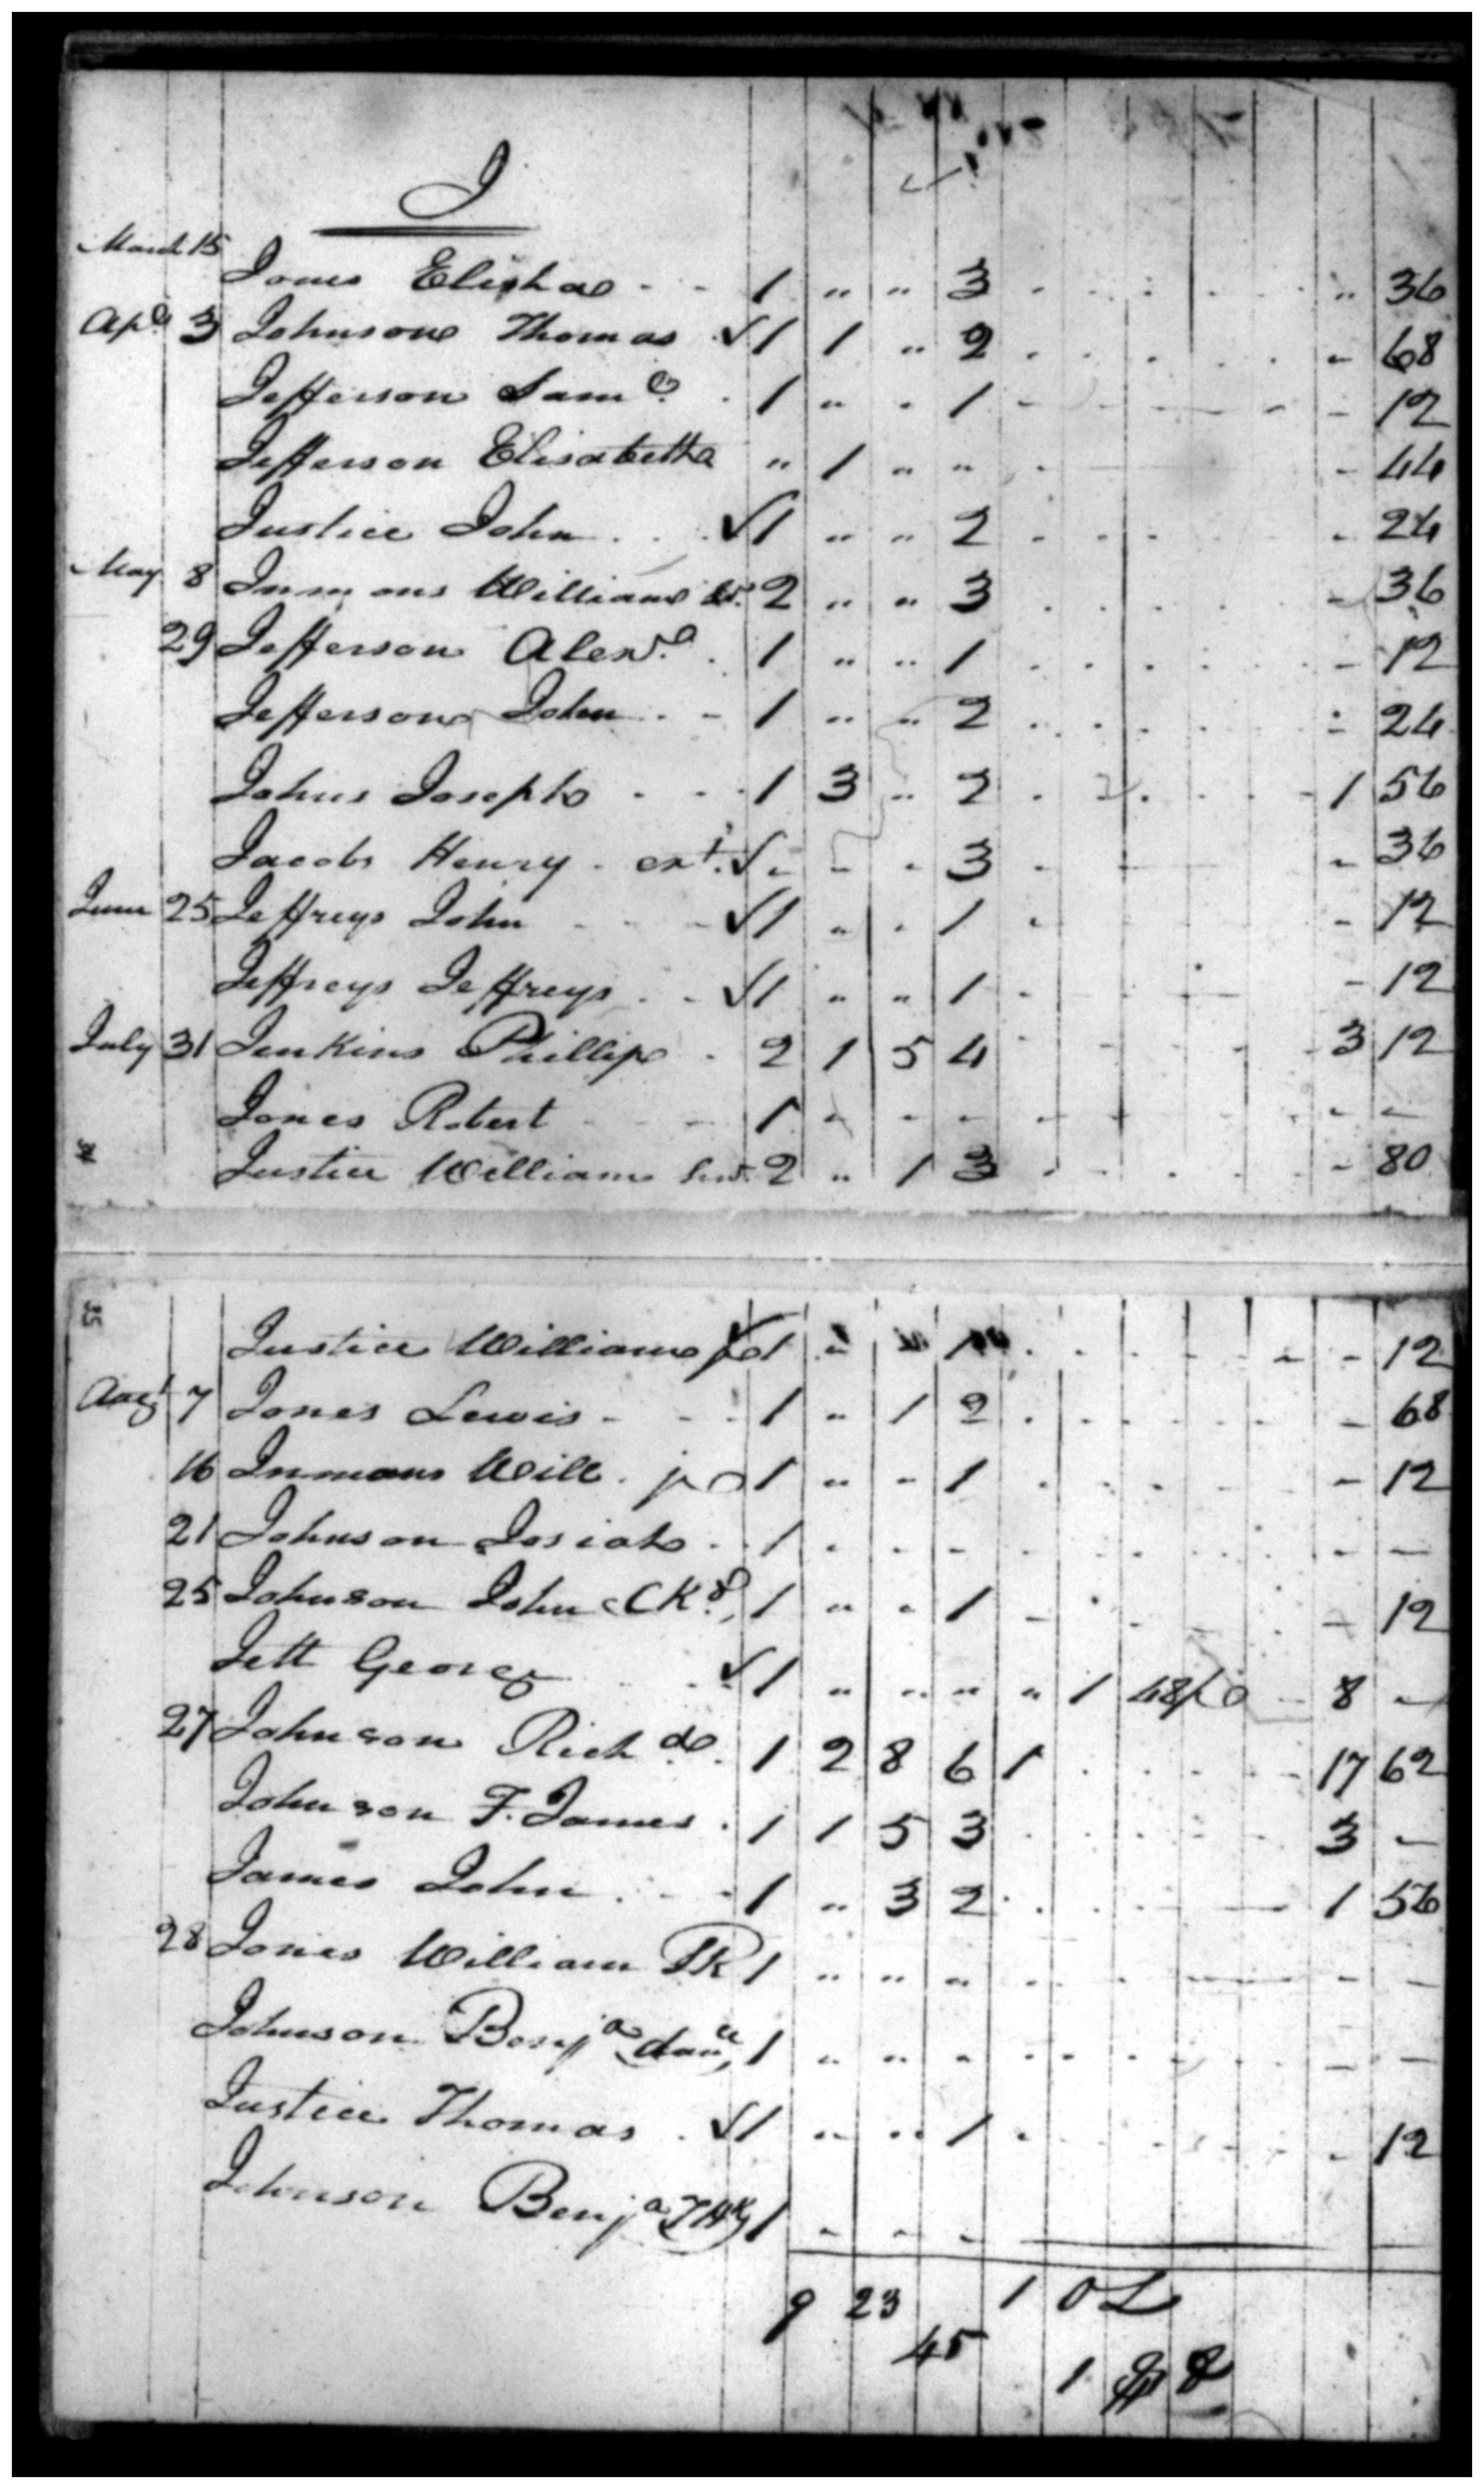 J
March 15
Jones Elisha - - 1 " " 3 - - - - - " 36
Apl 3 Johnson Thomas √ 1 1 " 2 - - - - - - 68
Jefferson Saml . 1 " - 1 - - - - - 12
Jefferson Elisabeth " 1 " " - - 44
Justice John . . √ 1 " " 2 - - - - 24
May 8 Inmans William Sr. 2 " " 3 - - - - - 36
29 Jefferson Alexr. . 1 " " 1 - - - - - - 12
Jefferson John . - 1 " " 2 - - - - - 24
Johns Joseph - - - 1 3 " 2 - - - - - 1 56
Jacobs Henry - ext. √ - - - 3 - - - 36
June 25 Jeffreys John - - √ 1 " - 1 - - 12
Jeffreys Jeffreys . - √ 1 " " 1 - - - - 12
July 31 Jenkins Phillip - 2 1 5 4 - - - - 3 12
Jones Robert - - - 1 - - - - - - - -
Justice William Senr. 2 " 1 3 - - - - - 80
35
Justice William √ 1 " 1 - - - - - - 12
Augt 7 Jones Lewis - - - 1 " 1 2 - - - - - - 68
16 Inmans Will . jr 1 " - 1 - - - - - 12
21 Johnson Josiah . . 1 - - - - - - - - -
25 Johnson John CKd, 1 " - 1 - - - - 12
Jett George . . √ 1 " " " " 1 48/0 - 8 -
27 Johnson Richd. 1 2 8 6 1 - - - - 17 62
Johnson F. James . 1 1 5 3 - - - - - 3 -
James John . - - 1 " 3 2 - - - - 1 56
28 Jones William PK 1 " " " - - - - - -
Johnson Benja 1 " " - - - - - - -
Justice Thomas . √ 1 " " 1 - - - - - 12
Johnson Benja 1 - - -
9 23 1 0 L
45 1